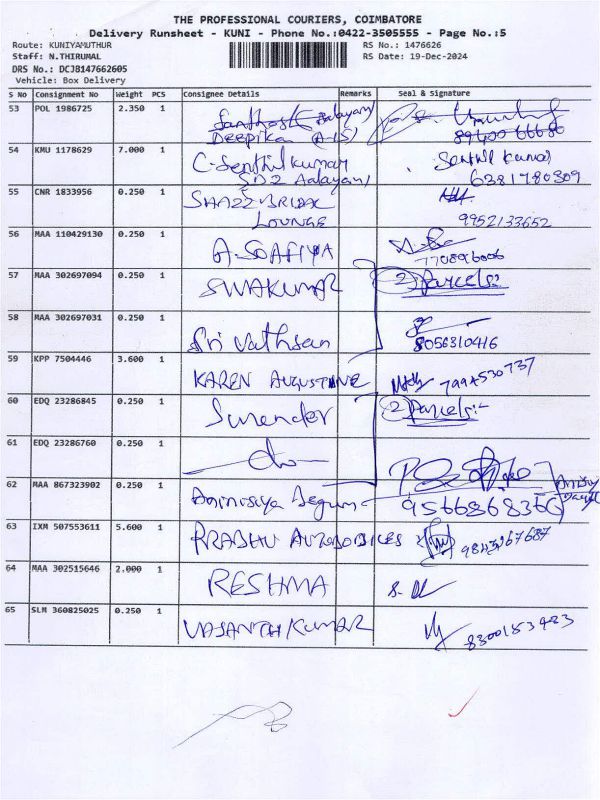 THE PROFESSIONAL COURIERS, COIMBATORE
Delivery Runsheet - KUNI - Phone No.:0422-3505555 - Page No.:5
Route: KUNIYAMUTHUR
RS No.: 1476626
Staff: N.THIRUMAL
RS Date: 19-Dec-2024
DRS No.: DCJB147662605
Vehicle: Box Delivery
S No Consignment No Weight PCS Consignee Details Remarks Seal & Signature
53 POL 1986725 2.350 1 Santhosh Aalayam
Deepika (A-15)
54 KMU 1178629 7.000 1 C-Senthil kumar Senthil kumar
SD2 Aalayam 6381780309
55 CNR 1833956 0.250 1
LOUNGE 9952133652
56 MAA 110429130 0.250 1 A.SOAFIYA
7708926006
57 MAA 302697094 0.250 1 SIVAKUMAR 2 Parcels:
58 MAA 302697031 0.250 1 Sri Vathsan
8056310416
59 KPP 7504446 3.600 1 KAREN AUGUSTINE 7994530737
60 EDQ 23286845 0.250 1 Surender 2 Parcels:-
61 EDQ 23286760 0.250 1 -do-
62 MAA 867323902 0.250 1 Begum 9566868360
63 IXM 507553611 5.600 1 PRABHU 9843267687
64 MAA 302515646 2.000 1 RESHMA
65 SLM 360825025 0.250 1 VASANTH KUMAR 8300153423